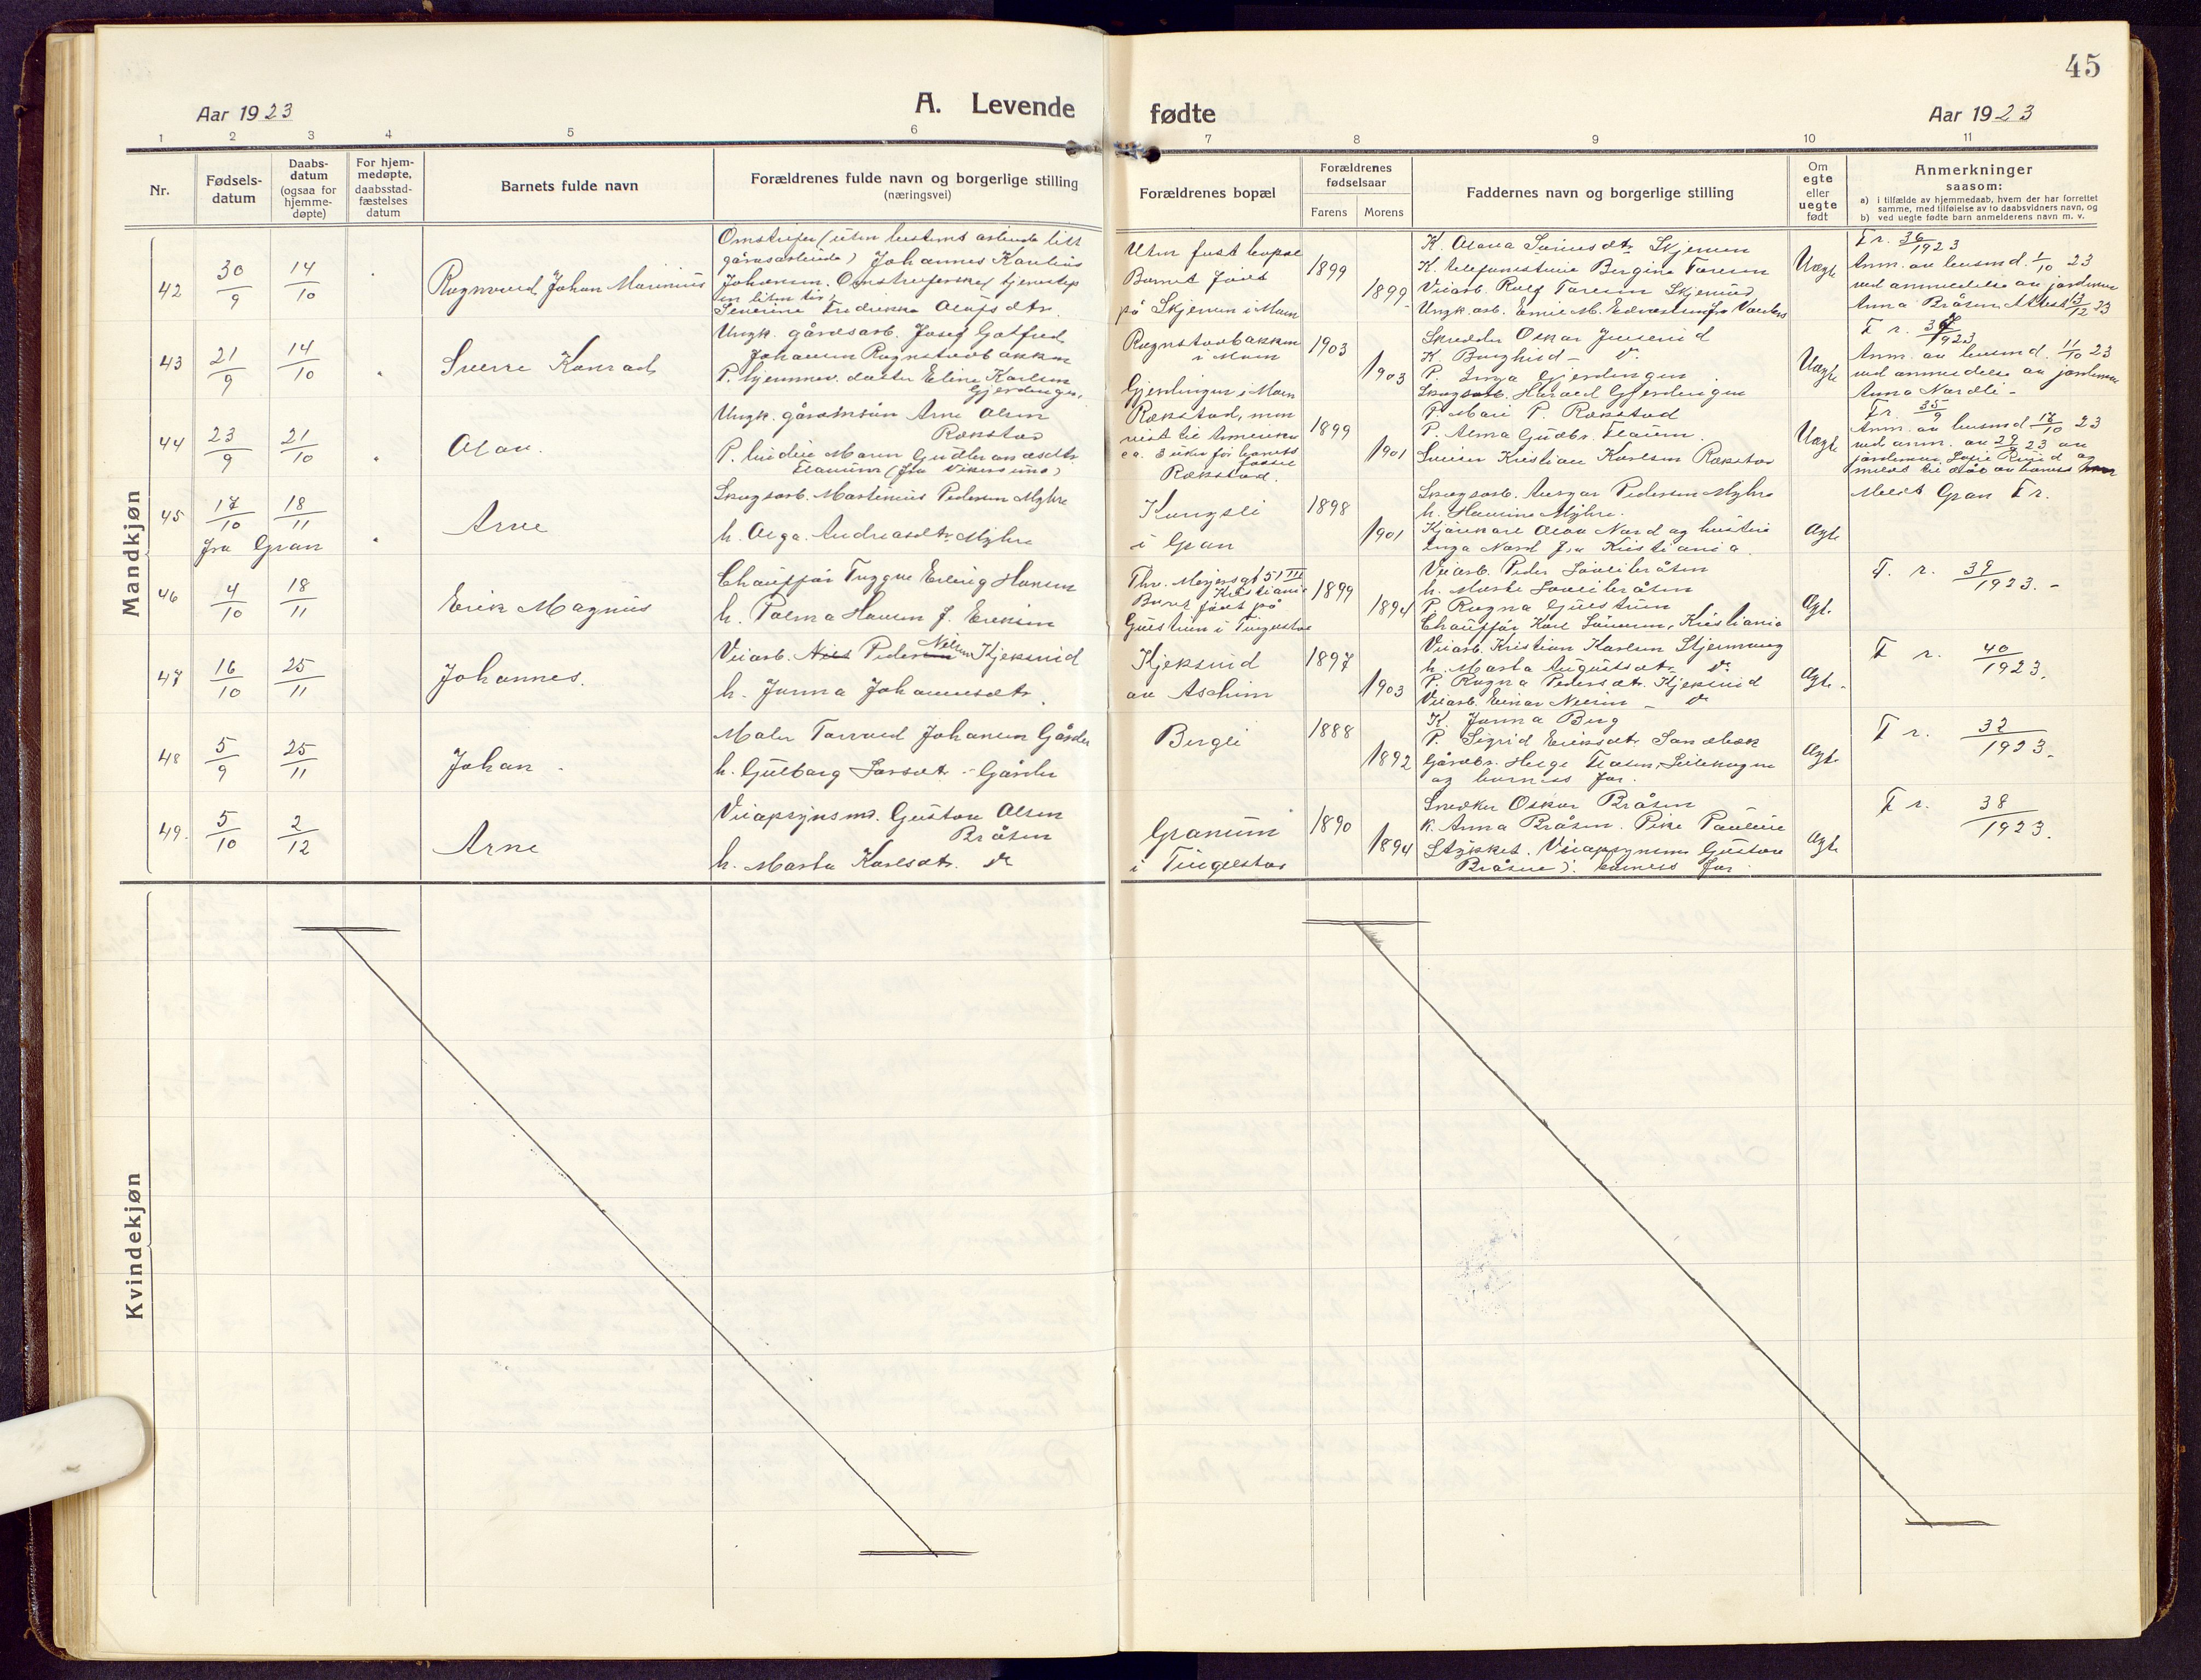 45
Aar 1923
A. Levende
fødte
Aar 1923
1 2 3 4 5 6 7 8 9 10 11
Nr.
Fødsels-
datum
Daabs-
datum
(ogsaa for
hjemme-
døpte)
For hjem-
medøpte,
daabsstad-
fæstelses
datum
Barnets fulde navn
Forældrenes fulde navn og borgerlige stilling
(næringsvei)
Forældrenes bopæl
Forældrenes
fødselsaar
Farens
Morens
Faddernes navn og borgerlige stilling
Om
egte
eller
uegte
født
Anmerkninger
saasom:
a) i tilfælde av hjemmedaab, hvem der har forrettet
samme, med tilføielse av to daabsvidners navn, og
b) ved uegte fødte barn anmelderens navn m. v.
Mandkjøn
42
30/9
14/10
Ragnvald Johan Marinius
gårdsarbeide) Johannes
Johansen. Omstreiferske
Severine Fredrikke Olafsdtr.
Uten fast bopæl
Barnet født
på Skjerven i Moen
1899
1899
K. telefonistinne Bergine Toresen
Veiarb. Rolf Toresen Skjerven
Uægte
F r. 36/1923
Anm. av husmd. 1/10 23
ved anmeldelse av jordmor
Anna Bråten
43
21/9
14/10
Sverre Konrad
Ungk. gårdsarb. Josef Gotfred
Johansen Rognstadbakken
P. hjemmev. datter Eline Karlsen
Gjerdingen.
Rognstadbakken
i Moen
Gjerdingen i Moen
1903
1903
Skredder Oskar
K. Borghild
P. Inga Gjerdingen
Skogsarb. Harald Gjerdingen
Uægte
F r. 1923
Anm. av husmd. 11/10 23
ved anmeldelse av jordmor
Anna Nordli
44
23/9
21/10
Olav.
Ungk. gårdmsøn Arne Olsen
Rækstad
P. Maren Gudbrandsdtr.
Flaum (fra Vikersund)
Rækstad,
reist til Amerika
ca. 3 uker før barnets
fødsel
Rækstad.
1899
1901
P. Mari P. Rækstad
P. Alma Gudbr. Flaum.
Kristian Karlsen Rækstad
Uægte
Fr. 35/9
Anm. av husmd 17/10 23
ved anm. av 29/9 23 av
45
17/10
18/11
fra Gran
Arne
Skogsarb. Martinius Pedersen Myhre
h. Olga Andreasdtr Myhre
Kongsli
i Gran
1898
1901
Skogsarb. Ansgar Pedersen Myhre
h. Myhre.
Kjørekarl Olav Nord og hustru
Inga Nord fra Kristiania.
Ægte
Meldt Gran F r.
46
4/10
18/11
Erik Magnus
Chauffør Trygve Erling Hansen
h. Palma Hansen f. Eriksen
Thv. Meyersgt 51 III
Kristiania
Barnet født på
Gulstuen i Tingelstad
1899
1894
Veiarb. Peder
h. Marte
P. Ragna Gulstuen
Chauffør Karl Kristiania
Ægte.
F. r. 39/1923.
47
16/10
25/11
Johannes.
Veiarb. Nils Pedersen Nilsen Kjeksrud
h. Jenna Johannesdtr.
Kjeksrud
av Aschim
1897
1903
Veiarb. Kristian Karlsen Stjernvang
h. Marta Augustsdtr.
P. Ragna Pedersdtr. Kjeksrud
Veiarb. Einar Nilsen
Ægte.
F r. 40/1923.
48
5/9
25/11
Johan
Maler Torvald Johansen Gårder
h. Gulborg Larsdtr. Gårder
Bergli
1888
1892
K. Jenna Berg
P. Sigrid Eriksdtr. Sandbæk
Gårdbr. Helge
og barnets far.
Ægte
F r. 32/1923.
49.
5/10
2/12
Arne
Veiopsynsm. Gustav Olsen
Bråten
h. Marta Karlsdtr.
Granum
i Tingelstad
1890
1894
Snedker Oskar Bråten
K. Anna Bråten. Pike Pauline
Stykket. Veiopsynsm Gustav
Bråten barnets far
Ægte
F r. 38/1923.
Kvindekjøn